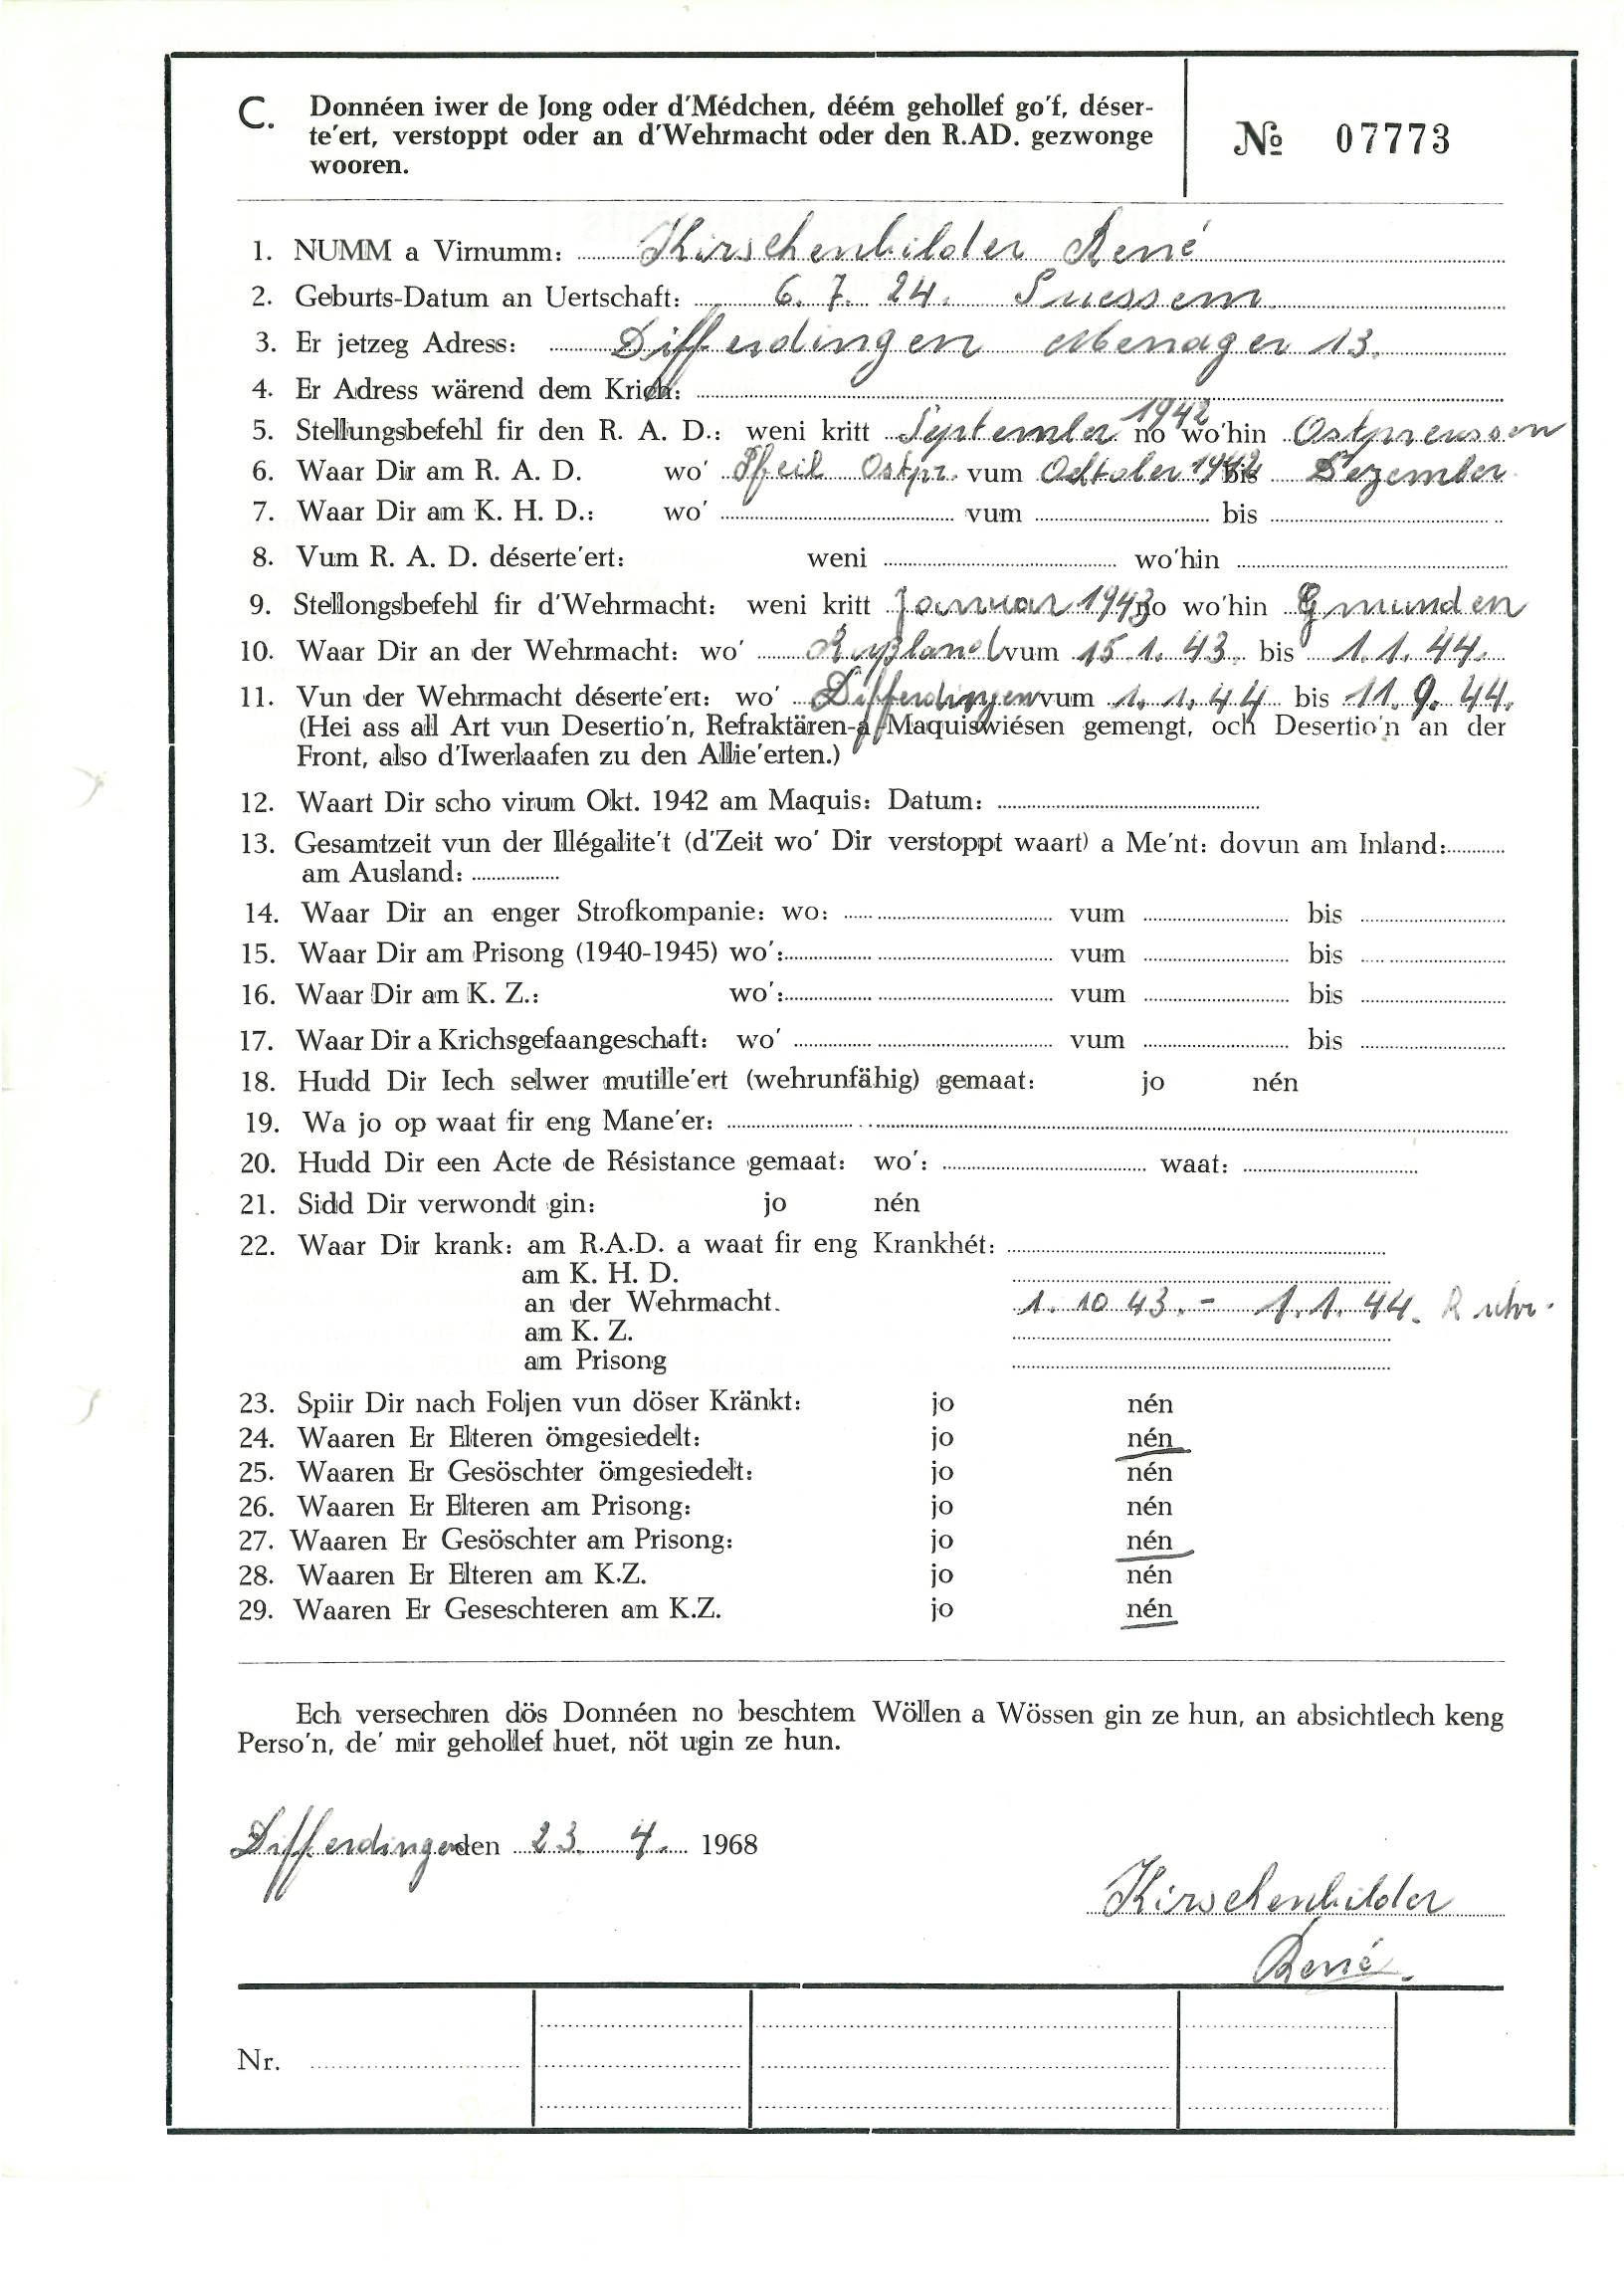 C. Donnéen iwer de Jong oder d'Médchen, déém gehollef go'f, déser-
te'ert, verstoppt oder an d'Wehrmacht oder den R.AD. gezwonge
wooren.
№ 07773
1. NUMM a Virnumm: Kirschenbilder René
2. Geburts-Datum an Uertschaft: 6. 7. 24. Suessem
3. Er jetzeg Adress: Differdingen Menager 13.
4. Er Adress wärend dem Krich:
5. Stellungsbefehl fir den R. A. D.: weni kritt September 1942 no wo'hin Ostpreussen
6. Waar Dir am R. A. D. wo' Pfeil Ostpr. vum Ocktober 1942 bis Dezember
7. Waar Dir am K. H. D.: wo' vum bis
8. Vum R. A. D. déserte'ert: weni wo'hin
9. Stellongsbefehl fir d'Wehrmacht: weni kritt Januar 1943 no wo'hin Gmunden
10. Waar Dir an der Wehrmacht: wo' Rußland vum 15.1.43. bis 1.1.44.
11. Vun der Wehrmacht déserte'ert: wo' Differdingen vum 1.1.44 bis 11.9.44.
(Hei ass all Art vun Desertio'n, Refraktären-a Maquiswiésen gemengt, och Desertio'n an der
Front, also d'Iwerlaafen zu den Allie'erten.)
12. Waart Dir scho virum Okt. 1942 am Maquis: Datum:
13. Gesamtzeit vun der Illégalite't (d'Zeit wo' Dir verstoppt waart) a Me'nt: dovun am Inland:
am Ausland:
14. Waar Dir an enger Strofkompanie: wo: vum bis
15. Waar Dir am Prisong (1940-1945) wo': vum bis
16. Waar Dir am K. Z.: wo': vum bis
17. Waar Dir a Krichsgefaangeschaft: wo' vum bis
18. Hudd Dir Iech selwer mutille'ert (wehrunfähig) gemaat: jo nén
19. Wa jo op waat fir eng Mane'er:
20. Hudd Dir een Acte de Résistance gemaat: wo': waat:
21. Sidd Dir verwondt gin: jo nén
22. Waar Dir krank: am R.A.D. a waat fir eng Krankhét:
am K. H. D.
an der Wehrmacht. 1.10.43.- 1.1.44. Ruhr.
am K. Z.
am Prisong
23. Spiir Dir nach Foljen vun döser Kränkt: jo nén
24. Waaren Er Elteren ömgesiedelt: jo nén
25. Waaren Er Gesöschter ömgesiedelt: jo nén
26. Waaren Er Elteren am Prisong: jo nén
27. Waaren Er Gesöschter am Prisong: jo nén
28. Waaren Er Elteren am K.Z. jo nén
29. Waaren Er Geseschteren am K.Z. jo nén
Ech versechren dös Donnéen no beschtem Wöllen a Wössen gin ze hun, an absichtlech keng
Perso'n, de' mir gehollef huet, nöt ugin ze hun.
Differdingen den 23. 4. 1968
Kirschenbilder
René.
Nr.